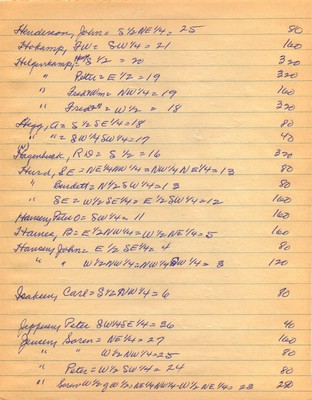 Henderson, John = S½NE¼ = 25 80
Hokamp, FW = SW¼ = 21 160
S½ = 20 320
" Peter = E½ = 19 320
" Fred Wm = NW¼ = 19 160
" Fred = W½ = 18 320
Hegg, A = S½SE¼ = 18 80
" " = SW¼SW¼ = 17 40
RD = S½ = 16 320
Hurd, SE = NE¼NW¼ = NW¼NE¼ = 13 80
" Burdett = N½SW¼ = 13 80
" SE = W½SE¼ = E½SW¼ = 12 160
Hansen, Peter O = SW¼ = 11 160
B = E½NW¼ = W½NE¼ = 5 160
Hansen, John = E½SE¼ = 4 80
" " W½NW¼ = NW¼SW¼ = 3 120
Isaksen, Carl = S½NW¼ = 6 80
Jeppesen, Peter SW¼SE¼ = 26 40
Jensen, Soren = NE¼ = 27 160
" " W½NW¼ = 25 80
" Peter = W½SW¼ = 24 80
" Soren = W½ NE¼NW¼ - W½NE¼ = 23 280